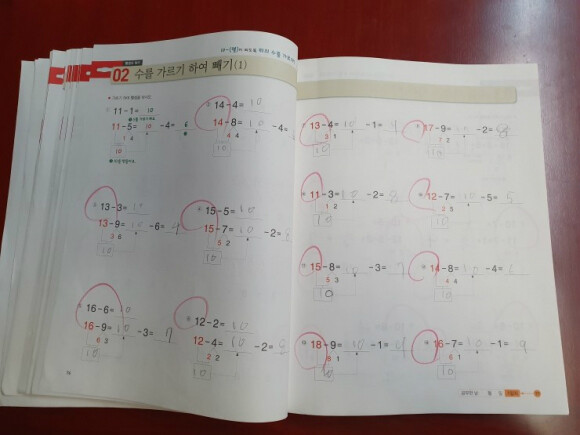 02 수를 가르기 하여 빼기(1)
11-1= 10
11-5= 10 -4= 6
1 4
10
14-4= 10
14-8= 10 -4=
4 4
10
13-3= 10
13-9= 10 -6= 4
3 6
10
15-5= 10
15-7= 10 -2=
5 2
10
16-6= 10
16-9= 10 -3= 7
6 3
10
12-2= 10
12-4= 10 -2= 8
2 2
10
13-4= 10 -1=
3 1
10
17-9= 10 -2= 8
7 2
10
11-3= 10 -2= 8
1 2
10
12-7= 10 -5= 5
2 5
10
15-8= 10 -3= 7
5 3
10
14-8= 10 -4=
4 4
10
18-9= 10 -1= 9
10
16-7= 10 -1= 9
6 1
10